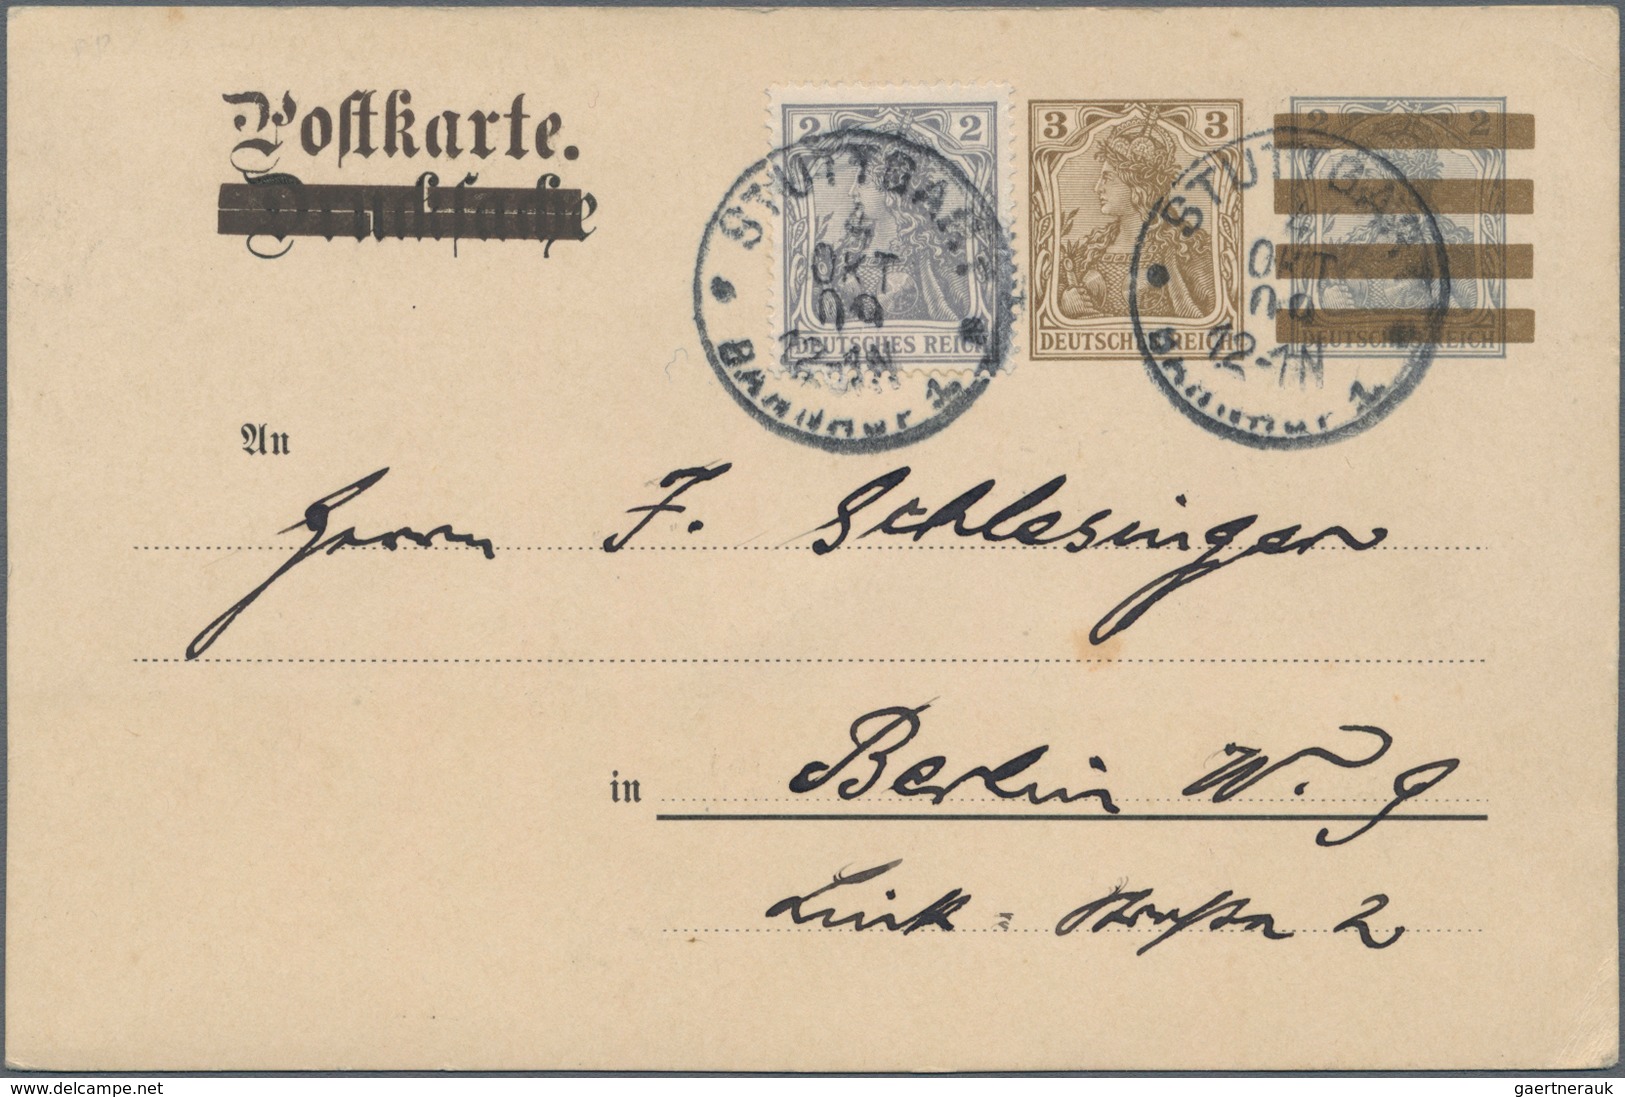 Postkarte.
Drucksache
2 2
DEUTSCHES REICH
3 3
DEUTSCHES REICH
2 2
DEUTSCHES REICH
STUTTGART
4
OKT
09
12-1N
Bahnhof 1
STUTTGART
4
OKT
09
12-1N
Bahnhof 1
An
Herrn F. Schlesinger
in Berlin W. 9
Link-Straße 2
www.delcampe.net
gaertnerauk